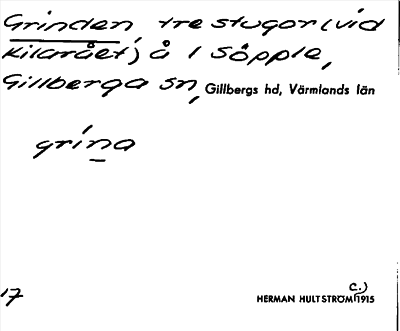 Grinden, tre stugor (vid
Kilarået) å 1 Söpple,
Gillberga sn, Gillbergs hd, Värmlands län
grína
17
HERMAN HULTSTRÖM 1915
c.)